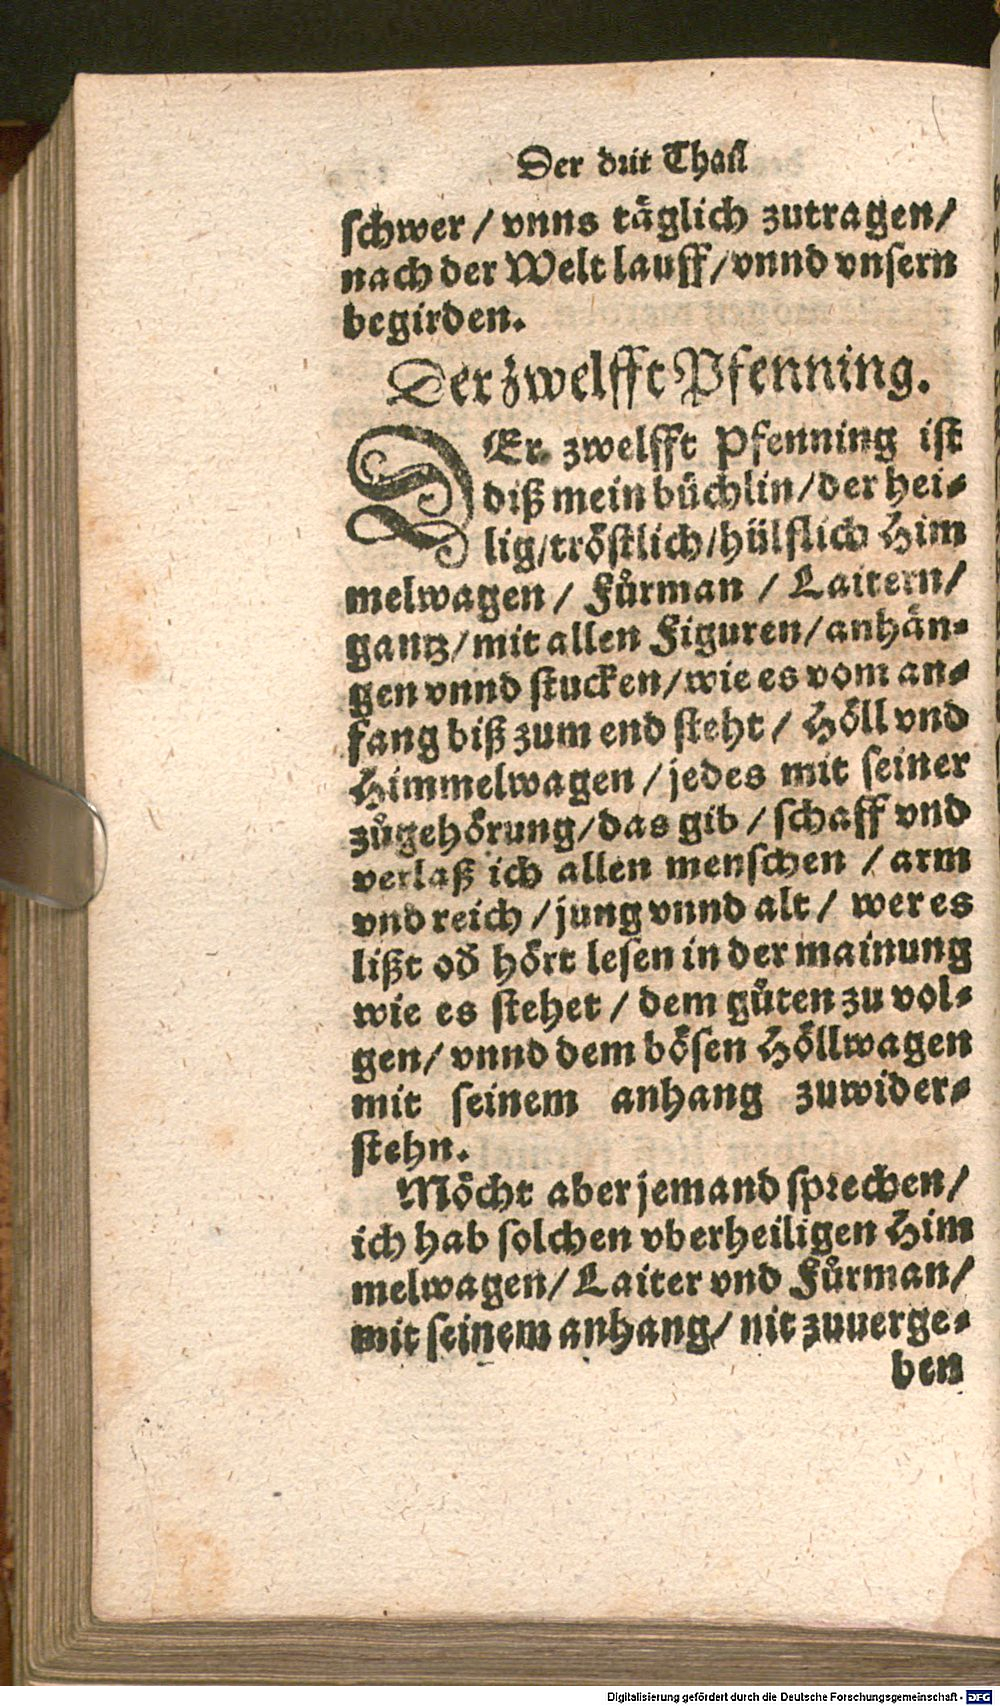 Der drit Thail
schwer / vnns täglich zutragen/
nach der Welt lauff/vnnd vnsern
begirden.
Der zwelfft Pfenning.
DEr zwelfft Pfenning ist
diß mein büchlin/der hei-
lig/tröstlich/hülflich Him
melwagen / Fůrman / Laitern/
gantz/mit allen Figuren/anhän-
gen vnnd stucken/wie es vom an-
fang biß zum end steht / Höll vnd
Himmelwagen /jedes mit seiner
zůgehörung/das gib / schaff vnd
verlaß ich allen menschen / arm
vnd reich /jung vnnd alt / wer es
lißt od̄ hört lesen in der mainung
wie es stehet / dem gůten zu vol-
gen/ vnnd dem bösen Höllwagen
mit seinem anhang zuwider-
stehn.
Möcht aber jemand sprechen/
ich hab solchen vberheiligen Him
melwagen/ Laiter vnd Fůrman/
mit seinem anhang/ nit zuuerge-
ben
Digitalisierung gefördert durch die Deutsche Forschungsgemeinschaft - DFG